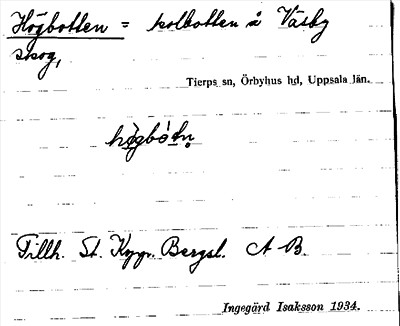 Högbotten = kolbotten å Väsby
skog,
Tierps sn, Örbyhus hd, Uppsala län.
Tillh. St. Koppr. Bergsl. A B.
Ingegärd Isaksson 1934.